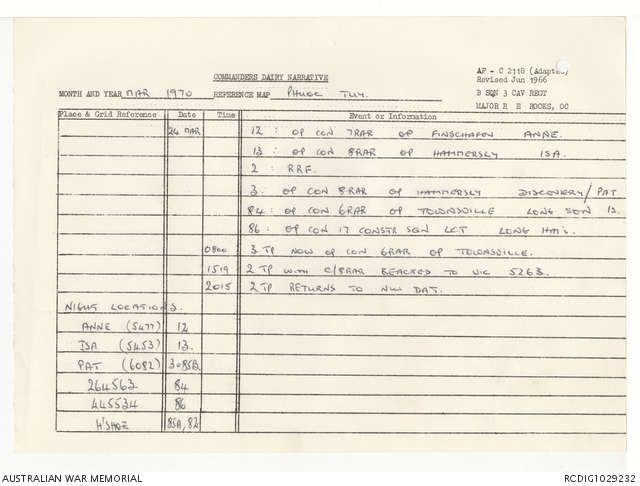 COMMANDERS DAIRY NARRATIVE
AF - C 2118 (Adapted)
Revised Jun 1966
MONTH AND YEAR MAR 1970 REFERENCE MAP PHUOC TUY.
B SQN 3 CAV REGT
MAJOR R E ROOKS, OC
Place & Grid Reference Date Time Event or Information
24 MAR 12 : OP CON 7RAR OP FINSCHAFEN ANNE.
13 : OP CON 8RAR OP HAMMERSLY ISA.
2 : RRF.
3 : OP CON 8RAR OP HAMMERSLY DISCOVERY/PAT
84 : OP CON 6RAR OP TOWNSVILLE LONG SON IS.
86 : OP CON 17 CONSTR SQN LCT LONG HAI'S.
0800 3 TP NOW OP CON 6RAR OP TOWNSVILLE.
1519 2 TP WITH C/8RAR REACTED TO VIC 5263.
2015 2 TP RETURNS TO NUI DAT.
NIGHT LOCATIONS.
ANNE (5477) 12
ISA (5453) 13.
PAT (6082) 3 85B
264563 84
445534 86
H'SHOE 85A, 82
AUSTRALIAN WAR MEMORIAL RCDIG1029232